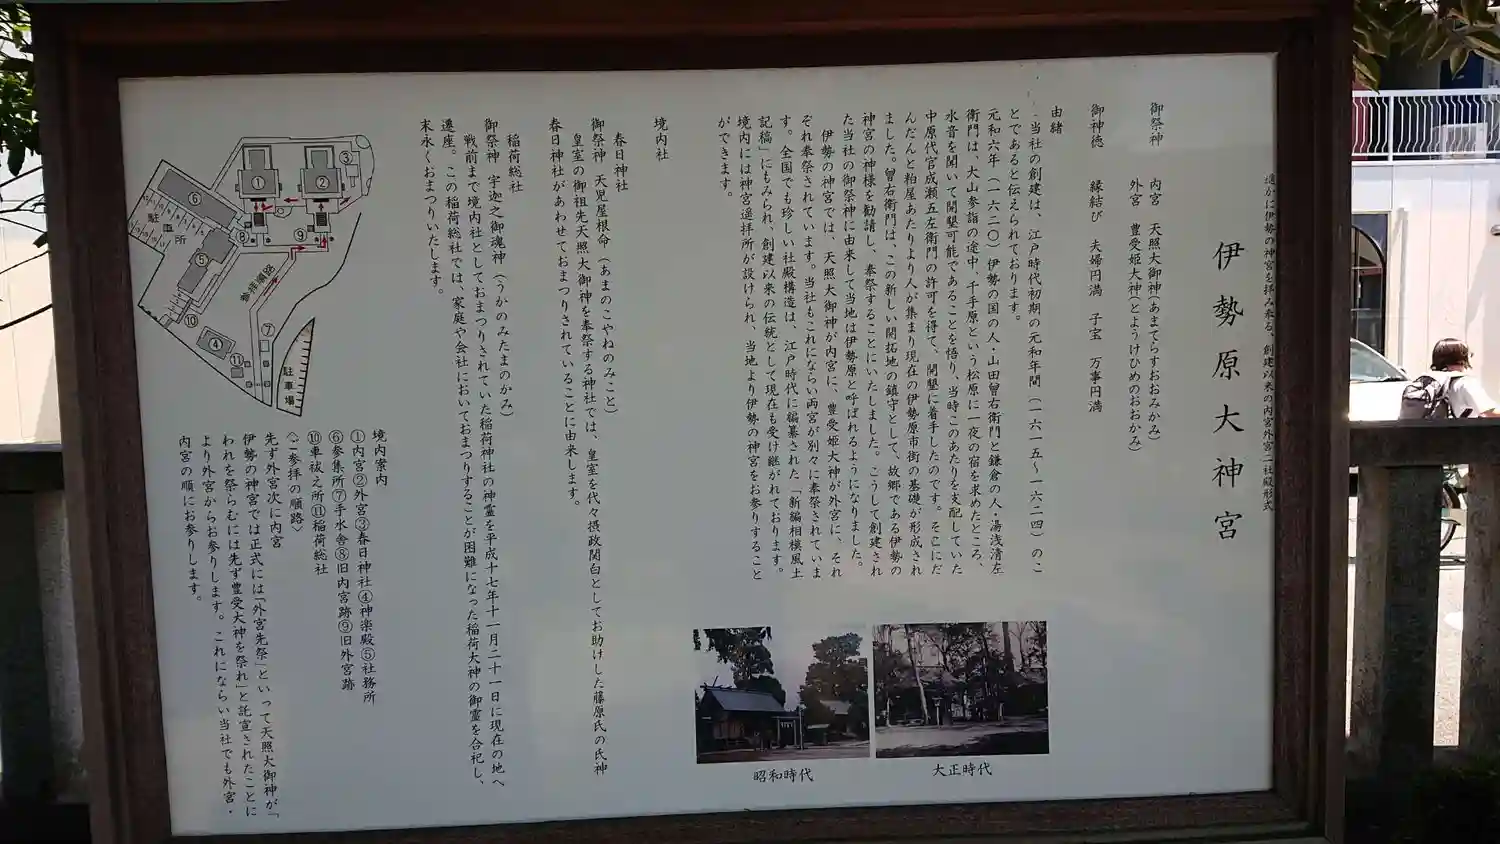 遥かに伊勢の神宮を拝み来る、創建以来の内宮外宮二社殿形式
伊勢原大神宮
御祭神 内宮 天照大御神(あまてらすおおみかみ)
外宮 豊受姫大神(とようけひめのおおかみ)
御神徳 縁結び 夫婦円満 子宝 万事円満
由緒
当社の創建は、江戸時代初期の元和年間(一六一五～一六二四)のこ
とであると伝えられております。
元和六年(一六二〇)伊勢の国の人・山田曽右衛門と鎌倉の人・湯浅清左
衛門は、大山参詣の途中、千手原という松原に一夜の宿を求めたところ、
水音を聞いて開墾可能であることを悟り、当時このあたりを支配していた
中原代官成瀬五左衛門の許可を得て、開墾に着手したのです。そこにだ
んだんと粕屋あたりより人が集まり現在の伊勢原市街の基礎が形成され
ました。曽右衛門は、この新しい開拓地の鎮守として、故郷である伊勢の
神宮の神様を勧請し、奉祭することにいたしました。こうして創建され
た当社の御祭神に由来して当地は伊勢原と呼ばれるようになりました。
伊勢の神宮では、天照大御神が内宮に、豊受姫大神が外宮に、それ
ぞれ奉祭されています。当社もこれにならい両宮が別々に奉祭されていま
す。全国でも珍しい社殿構造は、江戸時代に編纂された「新編相模風土
記稿」にもみられ、創建以来の伝統として現在も受け継がれております。
境内には神宮遥拝所が設けられ、当地より伊勢の神宮をお参りすること
ができます。
境内社
春日神社
御祭神 天児屋根命、(あまのこやねのみこと)
皇室の御祖先天照大御神を奉祭する神社では、皇室を代々摂政関白としてお助けした藤原氏の氏神
春日神社があわせておまつりされていることに由来します。
稲荷総社
御祭神 宇迦之御魂神(うかのみたまのかみ)
戦前まで境内社としておまつりされていた稲荷神社の神霊を平成十七年十一月二十一日に現在の地へ
遷座。この稲荷総社では、家庭や会社においておまつりすることが困難になった稲荷大神の御霊を合祀し、
末永くおまつりいたします。
境内案内
①内宮②外宮③春日神社④神楽殿⑤社務所
⑥参集所⑦手水舎⑧旧内宮跡⑨旧外宮跡
⑩車祓え所⑪稲荷総社
〈ご参拝の順路〉
先ず外宮次に内宮
伊勢の神宮では正式には「外宮先祭」といって天照大御神が「
われを祭らむには先ず豊受大神を祭れ」と託宣されたことに
より外宮からお参りします。これにならい当社でも外宮・
内宮の順にお参りします。
①
②
③
④
⑤
⑥
⑦
⑧
⑨
⑩
⑪
駐車所
参拝順路
駐車場
昭和時代
大正時代